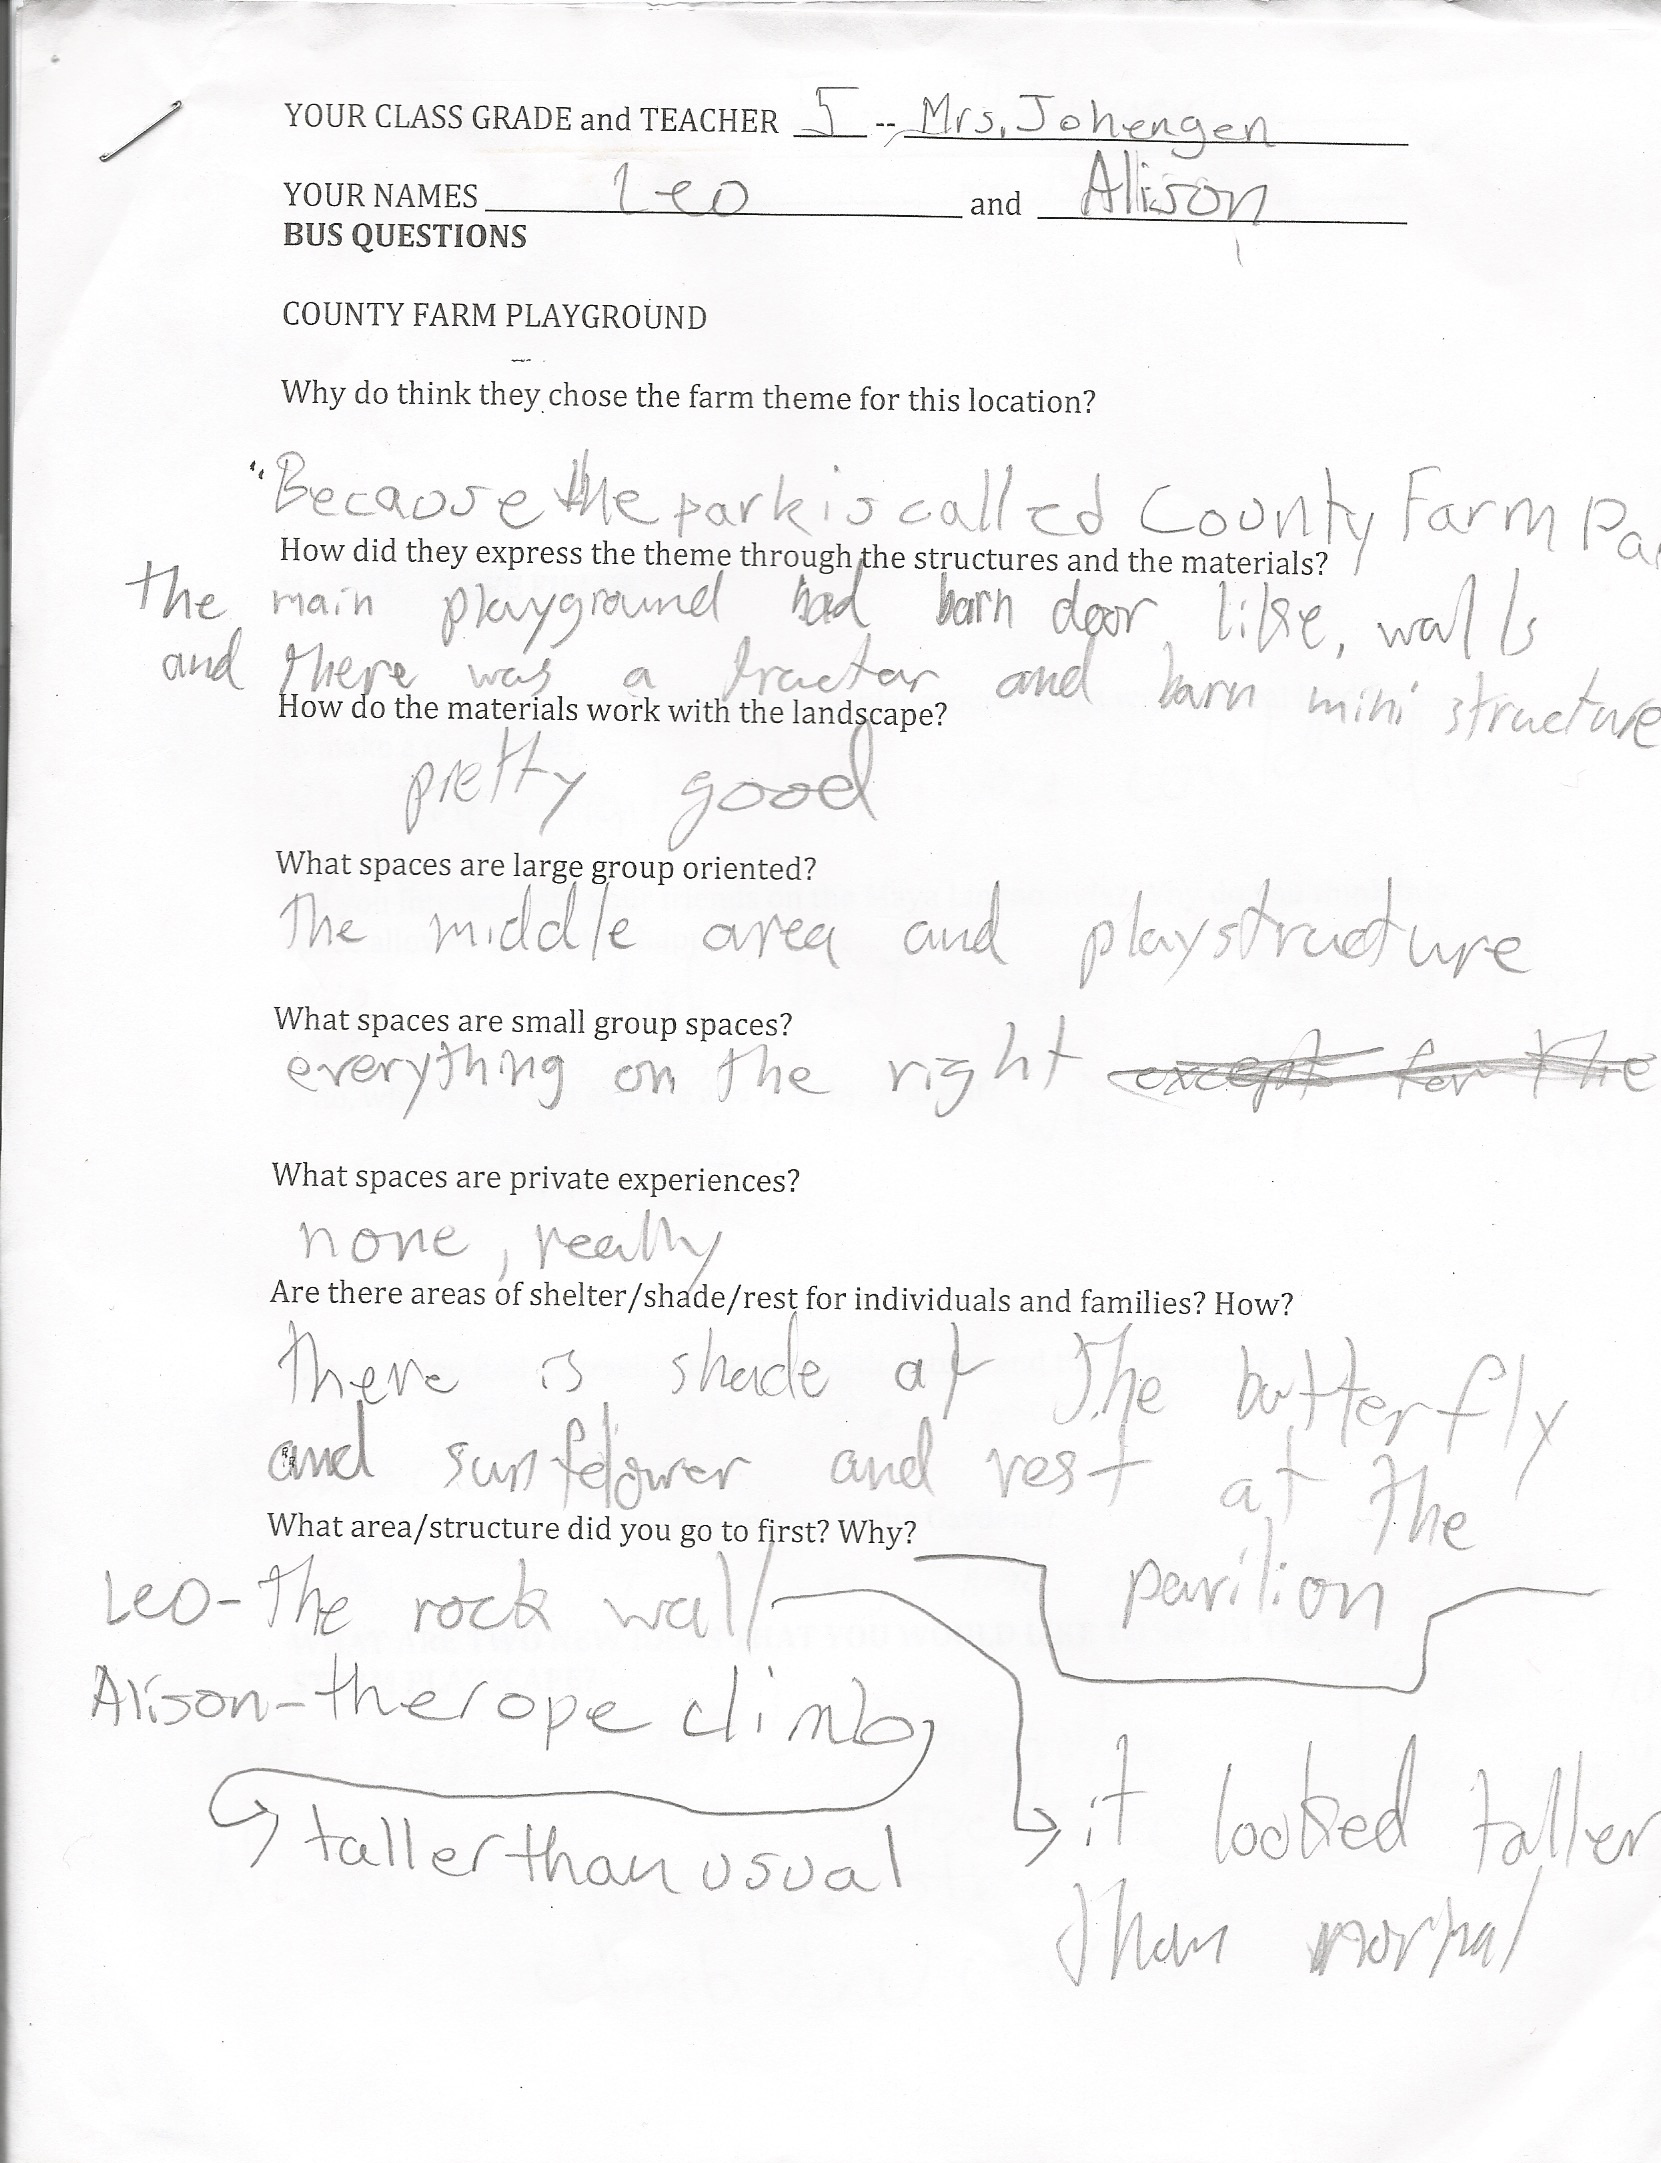 YOUR CLASS GRADE and TEACHER 5 -- Mrs. Johengen
YOUR NAMES Leo and Allison
BUS QUESTIONS
COUNTY FARM PLAYGROUND
Why do think they chose the farm theme for this location?
"Because the park is called County Farm Pa
How did they express the theme through the structures and the materials?
the main playground had barn door like, walls
and there was a tractor and barn mini structure
How do the materials work with the landscape?
pretty good
What spaces are large group oriented?
The middle area and playstructure
What spaces are small group spaces?
everything on the right except for the
What spaces are private experiences?
none, really
Are there areas of shelter/shade/rest for individuals and families? How?
there is shade at the butterfly
and sunflower and rest at the
pavilion
What area/structure did you go to first? Why?
Leo-The rock wall
Alison-the rope climb
it looked taller
than normal
taller than usual